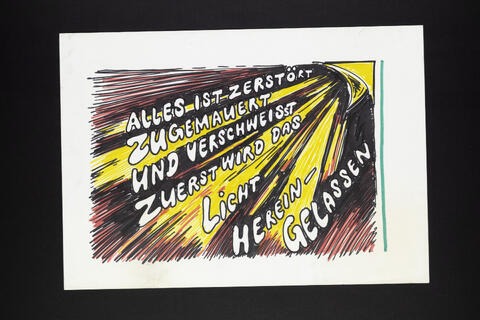 ALLES IST ZERSTÖRT
ZUGEMAUERT
UND VERSCHWEISST
ZUERST WIRD DAS
LICHT
HEREIN-
GELASSEN